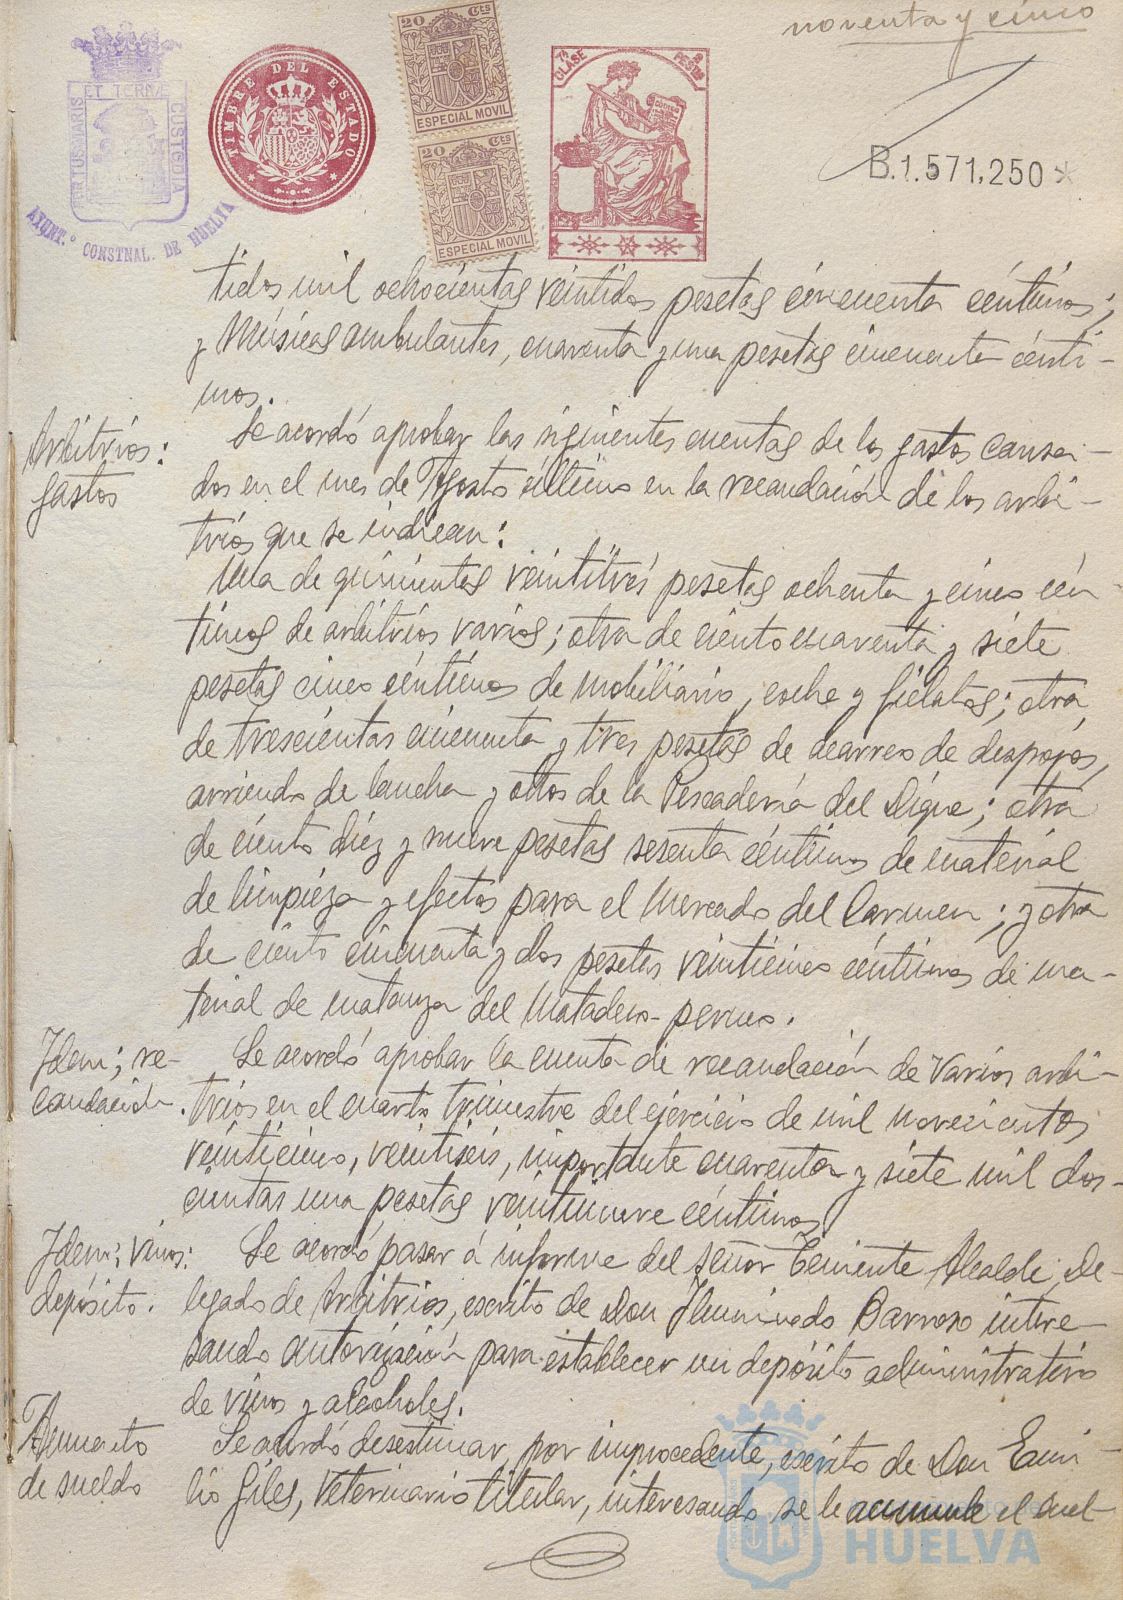 noventa y cinco
PORTUS MARIS
ET TERRÆ
CUSTODIA
AYUNT.º CONSTNAL. DE HUELVA
TIMBRE DEL ESTADO
20 Cts
ESPECIAL MOVIL
20 Cts
ESPECIAL MOVIL
7ª CLASE
PESTS
B.1.571.250
tidos mil ochocientas veintidos pesetas cincuenta céntimos;
y Músicas ambulantes, cuarenta y una pesetas cincuenta cénti-
mos.
Arbitrios:
gastos
Se acordó aprobar las siguientes cuentas de los gastos causa-
dos en el mes de Agosto último en la recaudación de los arbi-
trios que se indican:
Una de quinientas veintitrés pesetas ochenta y cinco cén-
timos de arbitrios varios; otra de ciento cuarenta y siete
pesetas cinco céntimos de mobiliario, coche y fielatos; otra
de trescientas cincuenta y tres pesetas de acarreo de despojos,
arriendo de lancha y otros de la Pescadería del Dique; otra
de ciento diez y nueve pesetas sesenta céntimos de material
de limpieza y efectos para el Mercado del Carmen; y otra
de ciento cincuenta y dos pesetas veinticinco céntimos de ma-
terial de matanza del Matadero-perneo.
Idem; re-
caudación.
Se acordó aprobar la cuenta de recaudación de varios arbi-
trios en el cuarto trimestre del ejercicio de mil novecientos
veinticinco, veintiseis, importante cuarenta y siete mil dos-
cientas una pesetas veintinueve céntimos
Idem; vinos:
depósito.
Se acordó pasar á informe del señor Teniente Alcalde De-
legado de Arbitrios, escrito de Don Iluminado Barroso intere-
sando autorización para establecer un depósito administrativo
de vinos y alcoholes.
Aumento
de sueldo
Se acordó desestimar, por improcedente, escrito de Don Emi-
lio Giles, Veterinario titular, interesando se le acumule el suel-
HUELVA